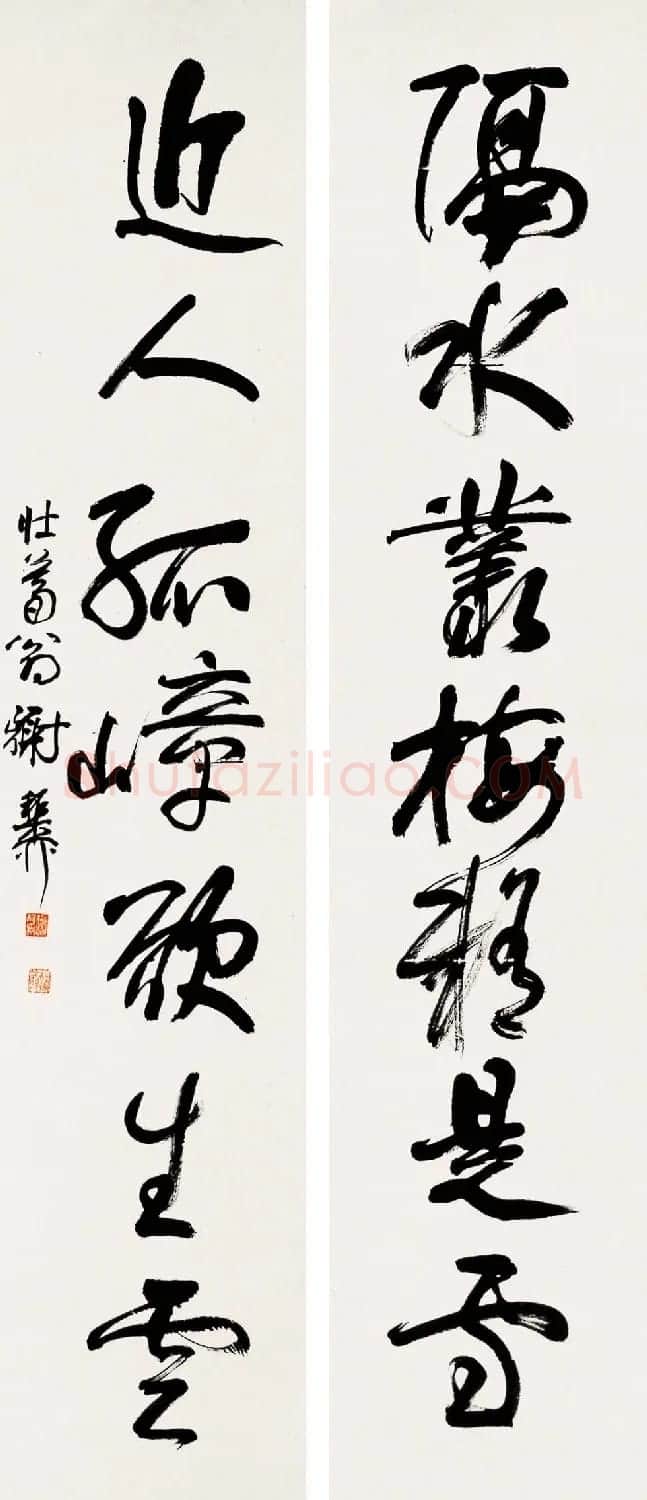 隔水叢梅疑是雪
近人孤嶂欲生雲
壮暮翁謝稚
Shufaziliao.COM